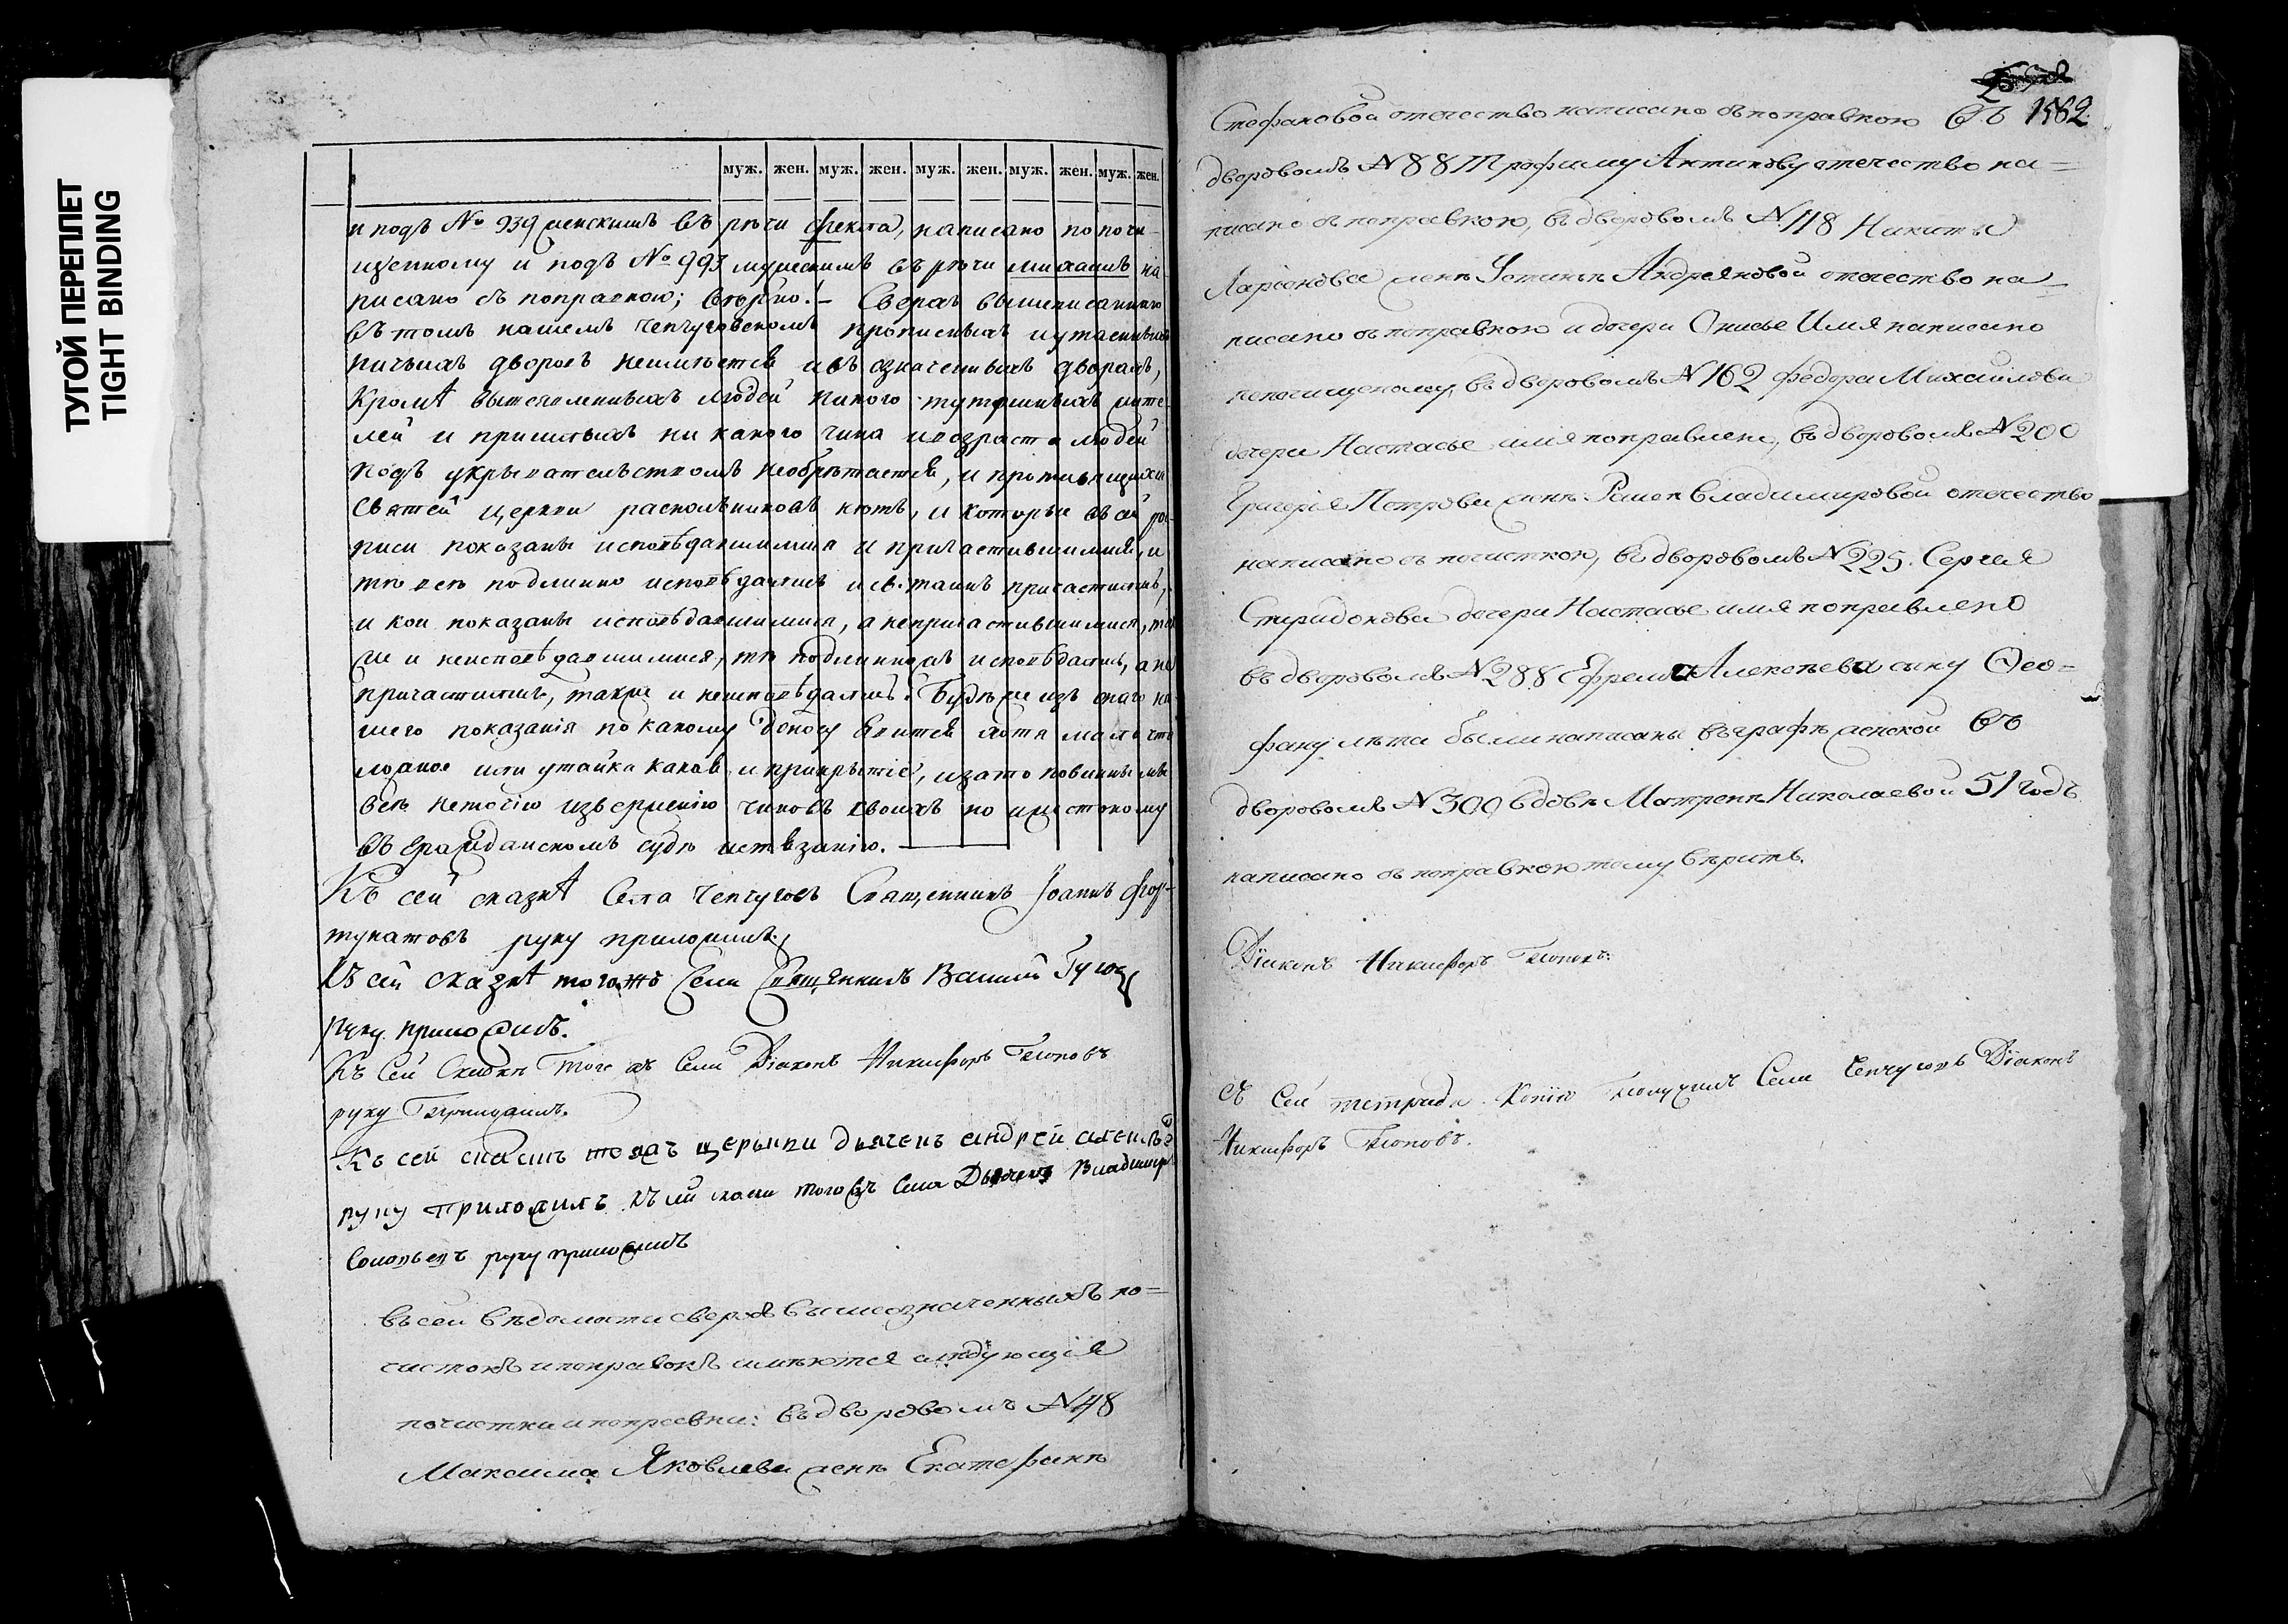 ТУГОЙ ПЕРЕПЛЕТ
TIGHT BINDING
муж. жен. муж. жен. муж. жен. муж. жен. муж. жен.
и подъ № 939 женскимъ въ рѣчи фекла, написано по почи-
щенному и подъ № 993 мужескимъ въ рѣчи михаилъ на-
писано съ поправкою; вѣрно. Сверхъ вышеписаннаго
въ томъ нашемъ чепчуговскомъ прописныхъ и утаенныхъ
ничьихъ дворовъ неимѣется и въ означенныхъ дворахъ,
кромѣ вышепомянныхъ людей никого тутошныхъ жите-
лей и пришлыхъ ни какого чина и возраста людей
подъ укрывательствомъ необрѣтается, и противящихся
святей церкви раскольниковъ нетъ, и которые въ сей рос-
писи показаны исповѣдавшимися и причастившимися, и
тѣ всѣ подлинно исповѣдались и св. таинъ причастились,
и кои показаны исповѣдавшимися, а непричастившимися, та
же и неисповѣдавшимися, тѣ подлинно исповѣдались, а не
причастились, также и неисповѣдались. Будѣ же изъ онаго на-
шего показанія по какому доносу явится хотя мало что
ложное или утайка какая и прикрытіе, и зато повинны мы
всѣ неточію изверженію чиновъ своихъ но и жестокому
въ гражданскомъ судѣ истязанію.
Къ сей сказкѣ Села Чепчуговъ Священникъ Іоаннъ Фор-
тунатовъ руку приложилъ
Къ сей сказкѣ тогожъ Села Священникъ Василій
руку приложилъ.
Къ Сей Сказкѣ Того жъ Села Діаконъ Никифоръ Поповъ
руку Приложилъ.
Къ сей сказкѣ тояжъ церькви дьячекъ андрей алексѣевъ
руку Приложилъ Къ сей сказки того жъ села Дьячекъ Владимиръ
Соловьевъ руку приложилъ
въ сей вѣдомости сверхъ вышеозначенныхъ по-
чистокъ и поправокъ имѣются слѣдующія
почистки и поправки: въ дворовомъ № 48
Максима Яковлева женѣ Екатеринѣ
1562
Стефановой отечество написано съ поправкою Въ
дворовомъ № 88 Трофиму Антипову отечество на-
писано съ поправкою, въ дворовомъ № 118 Никиты
Ларіонова женѣ Устиньѣ Андреяновой отечество на-
писано съ поправкою и дочери Онисье Имя написано
по почищеному, въ дворовомъ № 162 Федора Михаилова
дочери Настасье имя поправлено, въ дворовомъ № 200
Григорія Петрова женѣ Владимировой отечество
написано съ почисткою, въ дворовомъ № 225. Сергея
Спиридонова дочери Настасье имя поправлено
въ дворовомъ № 288 Ефрема Алексѣева сыну Ѳео-
фану лѣта были написаны въ графѣ женской Въ
дворовомъ № 300 вдовѣ Матренѣ Николаевой 51 годъ
написано съ поправкою тому вѣрить.
Діаконъ Никифоръ Поповъ.
Съ Сей тетради Копію Получилъ Села Чепчуговъ Діаконъ
Никифоръ Поповъ.